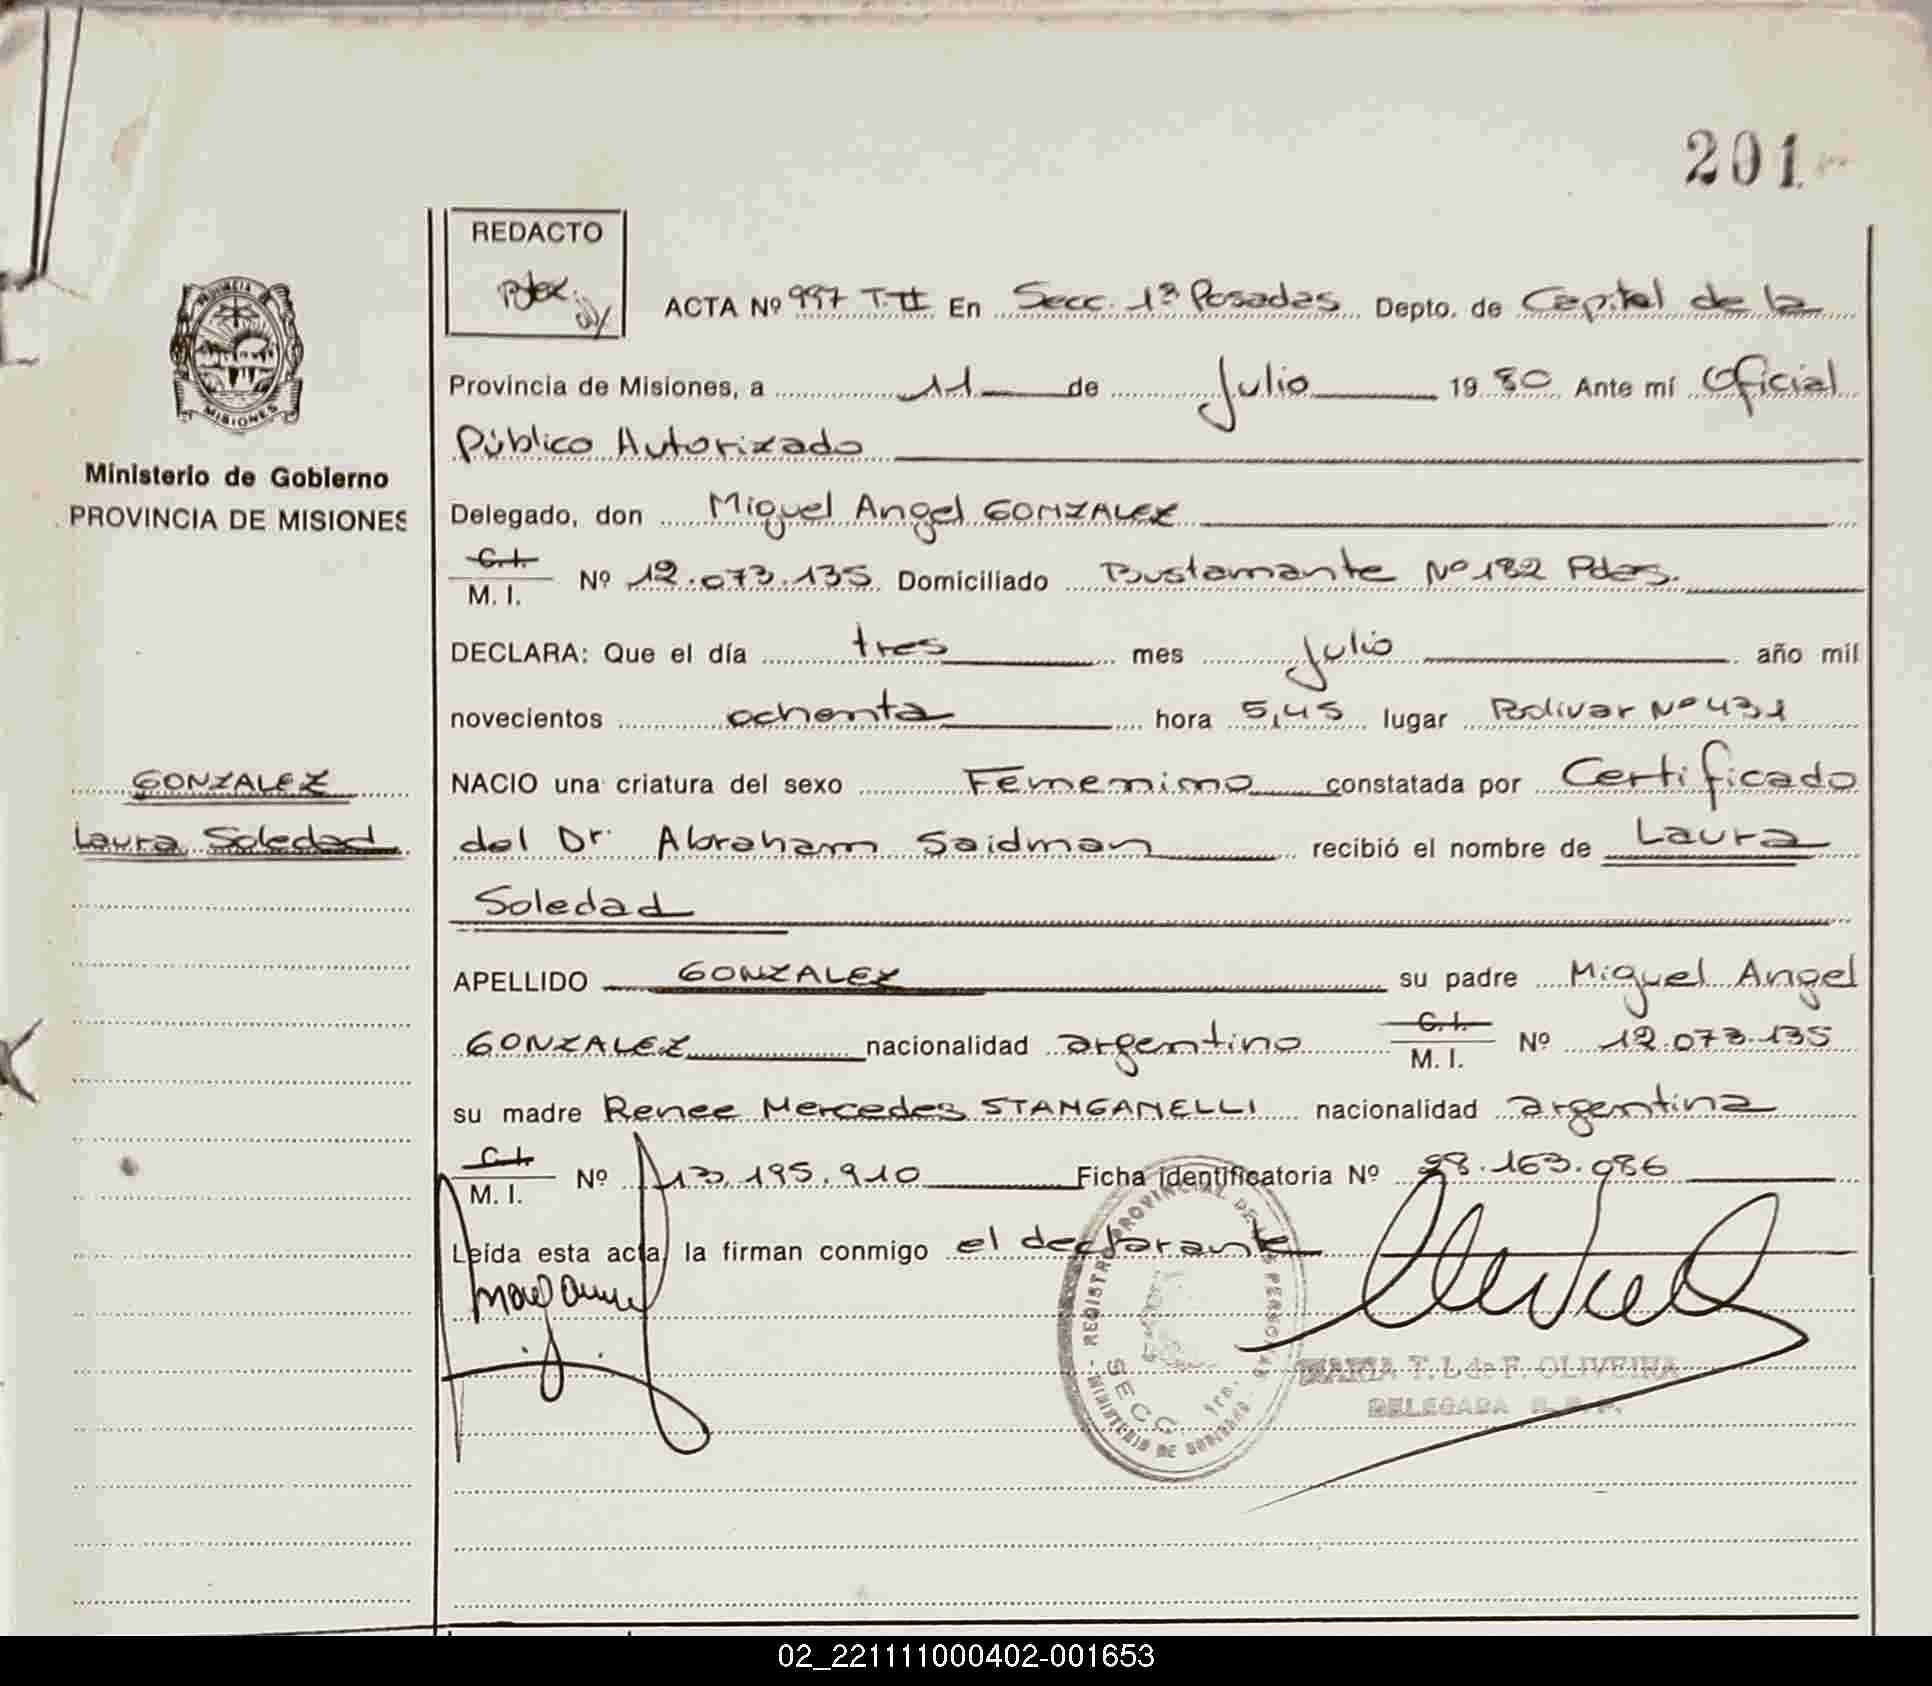 201
REDACTO
ACTA Nº 997 T.II En Secc. 1ª Posadas Depto. de Capital de la
Provincia de Misiones, a 11 de Julio 1980 Ante mí Oficial
Público Autorizado
PROVINCIA DE
MISIONES
Ministerio de Gobierno
PROVINCIA DE MISIONES
Delegado, don Miguel Angel GONZALEZ
C.I.
M. I. Nº 12.073.135 Domiciliado Bustamante Nº 182 Pdas.
DECLARA: Que el día tres mes Julio año mil
novecientos ochenta hora 5,45 lugar Bolivar Nº 431
GONZALEZ
Laura Soledad
NACIO una criatura del sexo Femenino constatada por Certificado
del Dr. Abraham Saidman recibió el nombre de Laura
Soledad
APELLIDO GONZALEZ su padre Miguel Angel
GONZALEZ nacionalidad argentino C.I. M. I. Nº 12.073.135
su madre Renee Mercedes STANGANELLI nacionalidad argentina
C.I.
M. I. Nº 13.195.910 Ficha identificatoria Nº 28.163.086
Leída esta acta, la firman conmigo el declarante
REGISTRO PROVINCIAL DE LAS PERSONAS
MINISTERIO DE GOBIERNO
SECC 1ra.
MARIA T. L de F. OLIVEIRA
DELEGADA R. P. P.
02_221111000402-001653